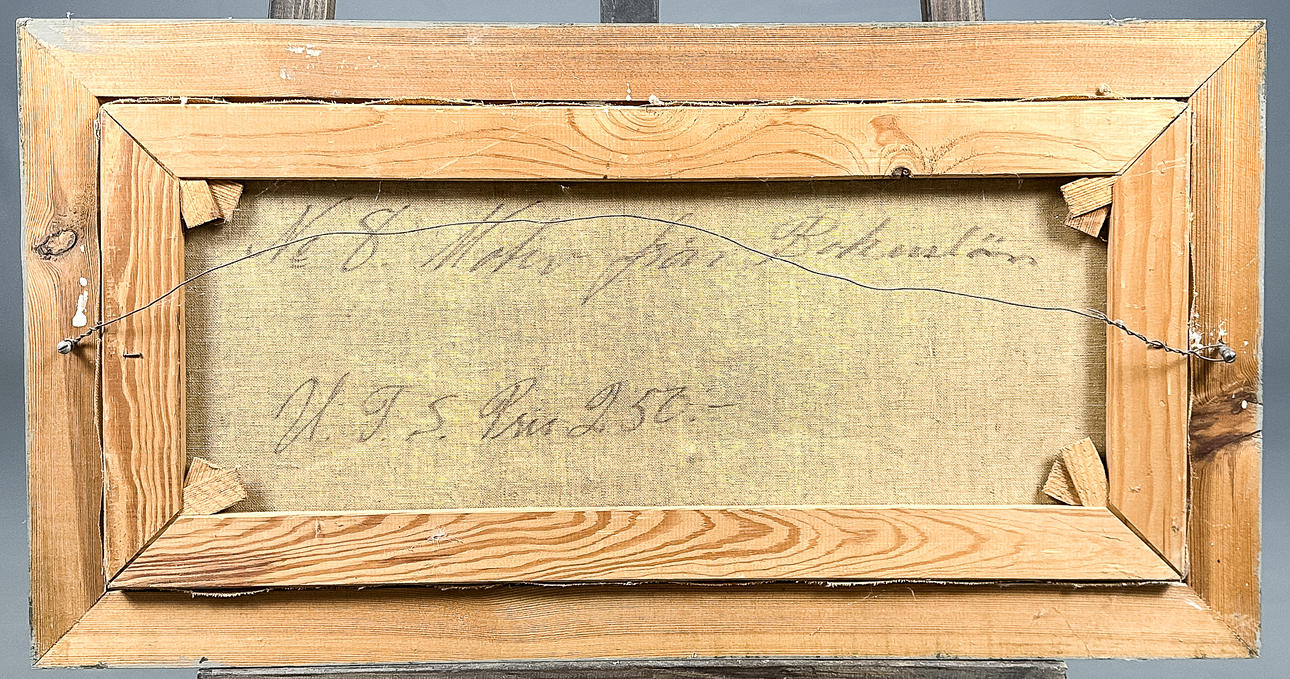 No 8. Motiv från Bohuslän
U. T. S. Pris 250.-